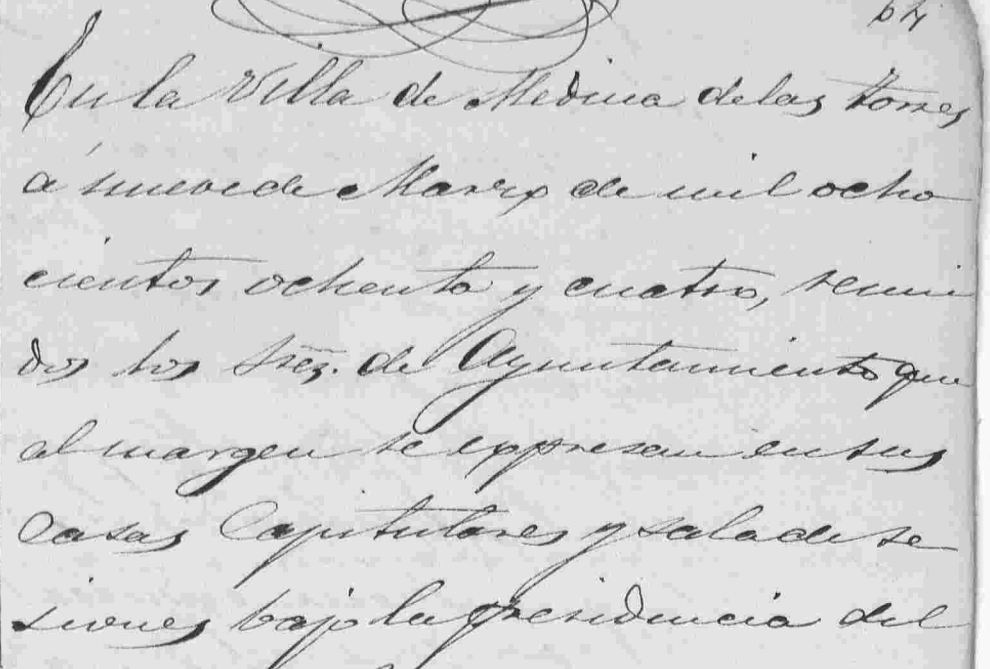 64
En la Villa de Medina de las Torres
á nueve de Marzo de mil ocho
cientos ochenta y cuatro, reuni
dos los Sres. de Ayuntamiento que
al margen se expresan en sus
Casas Capitulares y sala de se
siones bajo la presidencia del